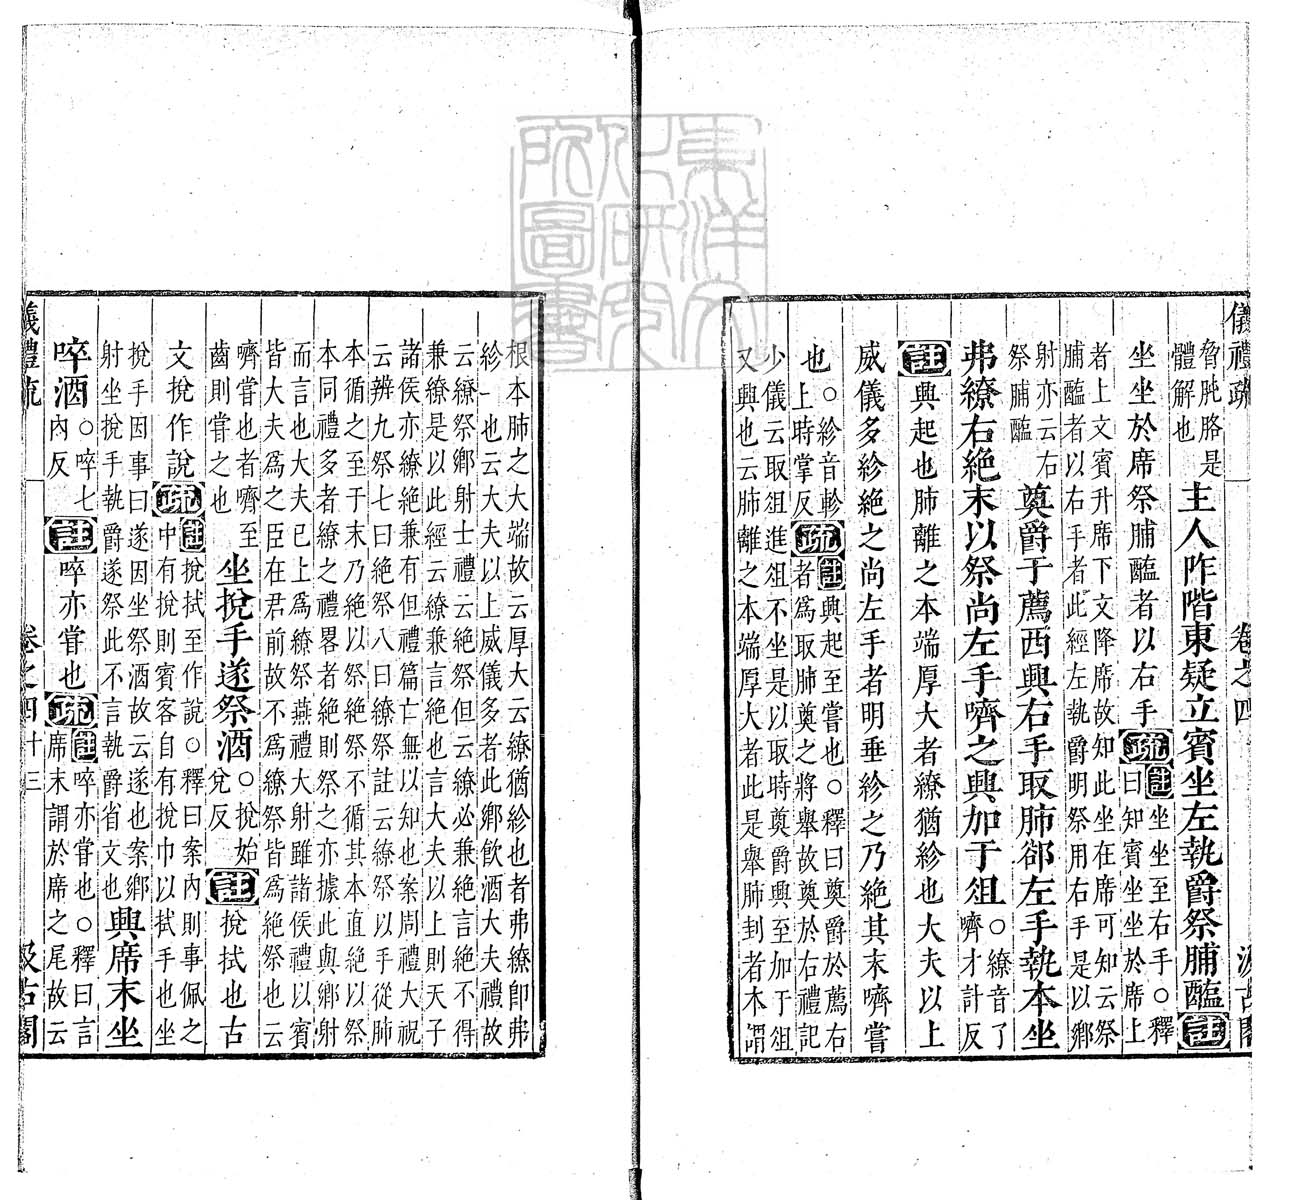 儀禮疏　卷之四　汲古閣
脅肫胳是
體解也
主人阼階東疑立賓坐左執爵祭脯醢【註】
坐坐於席祭脯醢者以右手【疏】【註】坐坐至右手○釋
曰知賓坐坐於席上
者上文賓升席下文降席故知此坐在席可知云祭
脯醢者以右手者此經左執爵明祭用右手是以鄉
射亦云右
祭脯醢
奠爵于薦西興右手取肺郤左手執本坐
弗繚右絶末以祭尚左手嚌之興加于俎○繚音了
嚌才計反
【註】興起也肺離之本端厚大者繚猶紾也大夫以上
威儀多紾絶之尚左手者明垂紾之乃絶其末嚌嘗
也○紾音軫
上時掌反
【疏】【註】興起至嘗也○釋曰奠爵於薦右
者爲取肺奠之將舉故奠於右禮記
少儀云取俎進俎不坐是以取時奠爵興至加于俎
又興也云肺離之本端厚大者此是舉肺刲者本謂
根本肺之大端故云厚大云繚猶紾也者弗繚卽弗
紾一也云大夫以上威儀多者此鄉飲酒大夫禮故
云繚祭鄉射士禮云絶祭但云繚必兼絶言絶不得
兼繚是以此經云繚兼言絶也言大夫以上則天子
諸侯亦繚絶兼有但禮篇亡無以知也案周禮大祝
云辨九祭七曰絶祭八曰繚祭註云繚祭以手從肺
本循之至于末乃絶以祭絶祭不循其本直絶以祭
本同禮多者繚之禮畧者絶則祭之亦據此與鄉射
而言也大夫已上爲繚祭燕禮大射雖諸侯禮以賓
皆大夫爲之臣在君前故不爲繚祭皆爲絶祭也云
嚌嘗也者嚌至
齒則嘗之也
坐挩手遂祭酒○挩始
兌反
【註】挩拭也古
文挩作說【疏】【註】挩拭至作說○釋曰案內則事佩之
中有挩則賓客自有挩巾以拭手也坐
挩手因事曰遂因坐祭酒故云遂也案鄉
射坐挩手執爵遂祭此不言執爵省文也
興席末坐
啐酒○啐七
內反
【註】啐亦嘗也【疏】【註】啐亦嘗也○釋曰言
席末謂於席之尾故云
儀禮疏　卷之四　十三　汲古閣